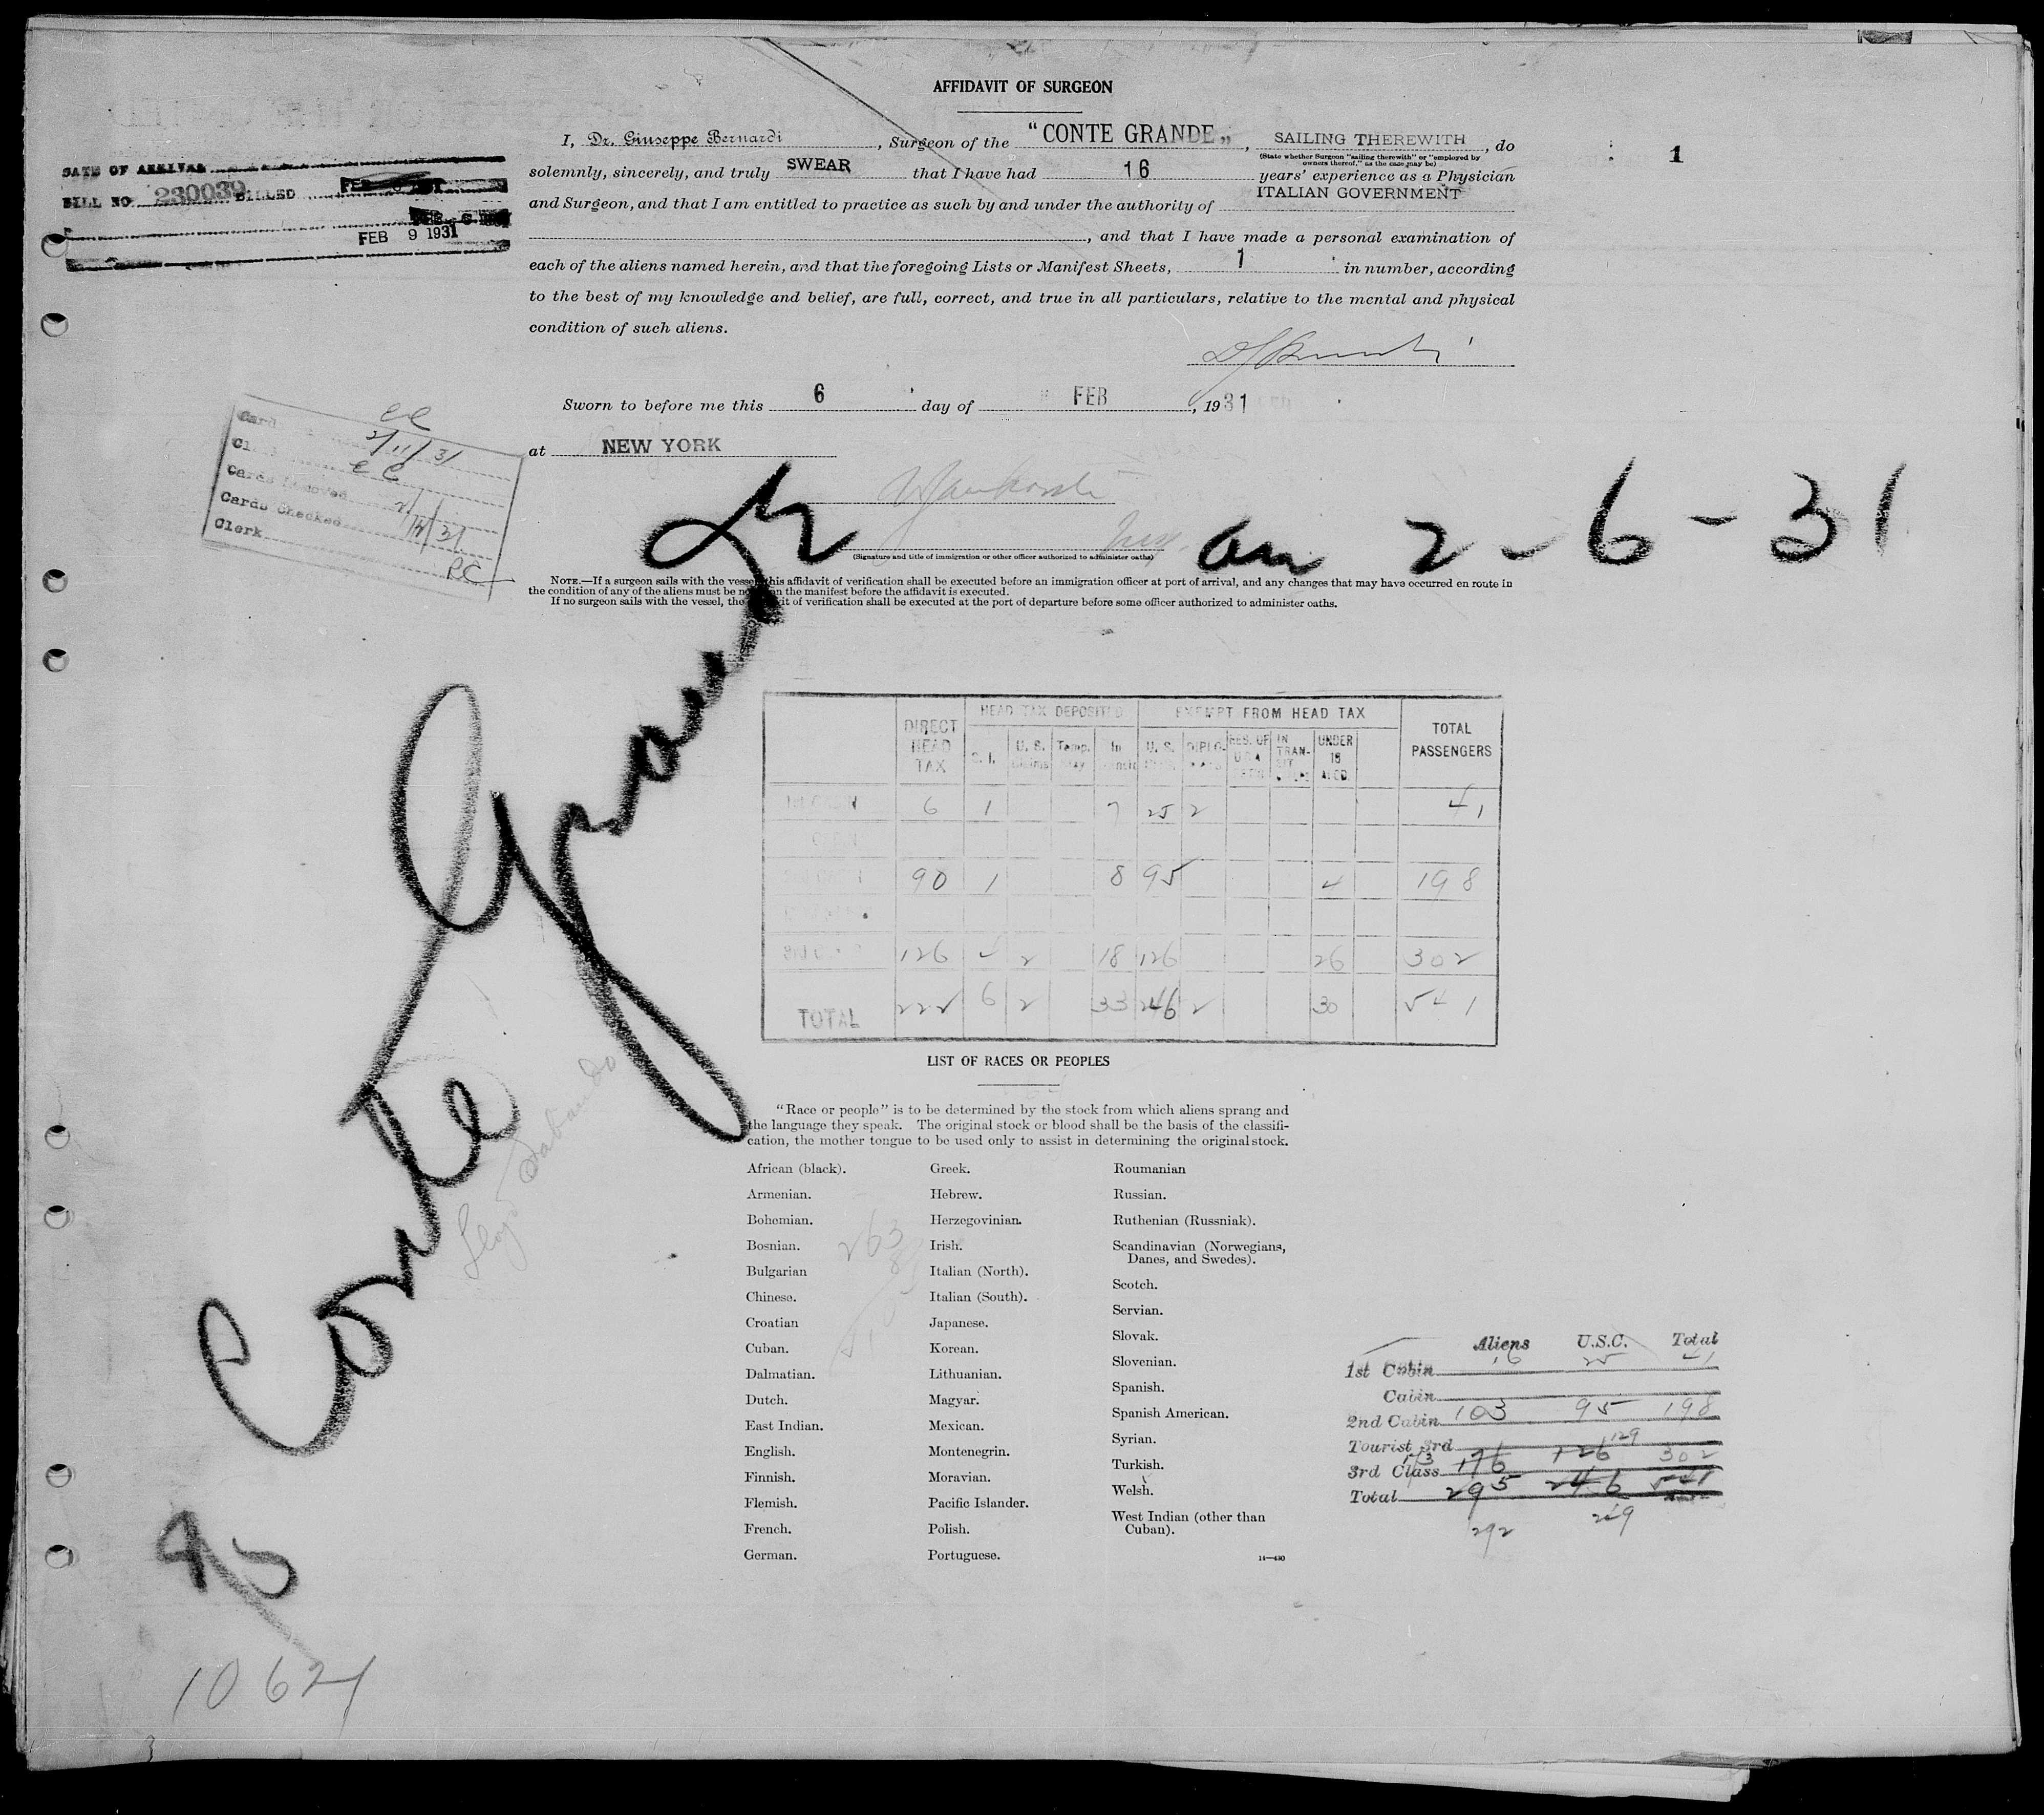 AFFIDAVIT OF SURGEON
I, Dr. Giuseppe Bernardi, Surgeon of the "CONTE GRANDE", SAILING THEREWITH, do
(State whether Surgeon "sailing therewith" or "employed by owners thereof," as the case may be)
solemnly, sincerely, and truly SWEAR that I have had 16 years' experience as a Physician
and Surgeon, and that I am entitled to practice as such by and under the authority of ITALIAN GOVERNMENT
, and that I have made a personal examination of
each of the aliens named herein, and that the foregoing Lists or Manifest Sheets, 1 in number, according
to the best of my knowledge and belief, are full, correct, and true in all particulars, relative to the mental and physical
condition of such aliens.
1
DATE OF ARRIVAL
BILL NO 230039 BILLED
FEB 9 1931
Sworn to before me this 6 day of FEB, 1931
at NEW YORK
Card
2/11/31
Cards Removed
Cards Checked
Clerk
(Signature and title of immigration or other officer authorized to administer oaths)
Conte Grande
2-6-31
NOTE.—If a surgeon sails with the vessel, this affidavit of verification shall be executed before an immigration officer at port of arrival, and any changes that may have occurred en route in
the condition of any of the aliens must be noted on the manifest before the affidavit is executed.
If no surgeon sails with the vessel, the affidavit of verification shall be executed at the port of departure before some officer authorized to administer oaths.
DIRECT HEAD TAX
HEAD TAX DEPOSITED
EXEMPT FROM HEAD TAX
TOTAL PASSENGERS
S. I. U. S. Claims Temp. Stay In Transit U. S. DIPLO- RES. OF IN TRAN-SIT UNDER 16
6 1 7 25 2 41
90 1 8 95 4 198
126 4 2 18 126 26 302
TOTAL 222 6 2 33 246 2 30 541
LIST OF RACES OR PEOPLES
"Race or people" is to be determined by the stock from which aliens sprang and
the language they speak. The original stock or blood shall be the basis of the classifi-
cation, the mother tongue to be used only to assist in determining the original stock.
African (black).
Armenian.
Bohemian.
Bosnian.
Bulgarian
Chinese.
Croatian
Cuban.
Dalmatian.
Dutch.
East Indian.
English.
Finnish.
Flemish.
French.
German.
Greek.
Hebrew.
Herzegovinian.
Irish.
Italian (North).
Italian (South).
Japanese.
Korean.
Lithuanian.
Magyar.
Mexican.
Montenegrin.
Moravian.
Pacific Islander.
Polish.
Portuguese.
Roumanian
Russian.
Ruthenian (Russniak).
Scandinavian (Norwegians,
Danes, and Swedes).
Scotch.
Servian.
Slovak.
Slovenian.
Spanish.
Spanish American.
Syrian.
Turkish.
Welsh.
West Indian (other than
Cuban).
14—430
Lloyd Sabaudo
263
Aliens U.S.C. Total
1st Cabin 16 25 41
Cabin
2nd Cabin 103 95 198
Tourist 3rd 129
3rd Class 173 176 126 302
Total 295 246 541
292 249
10621